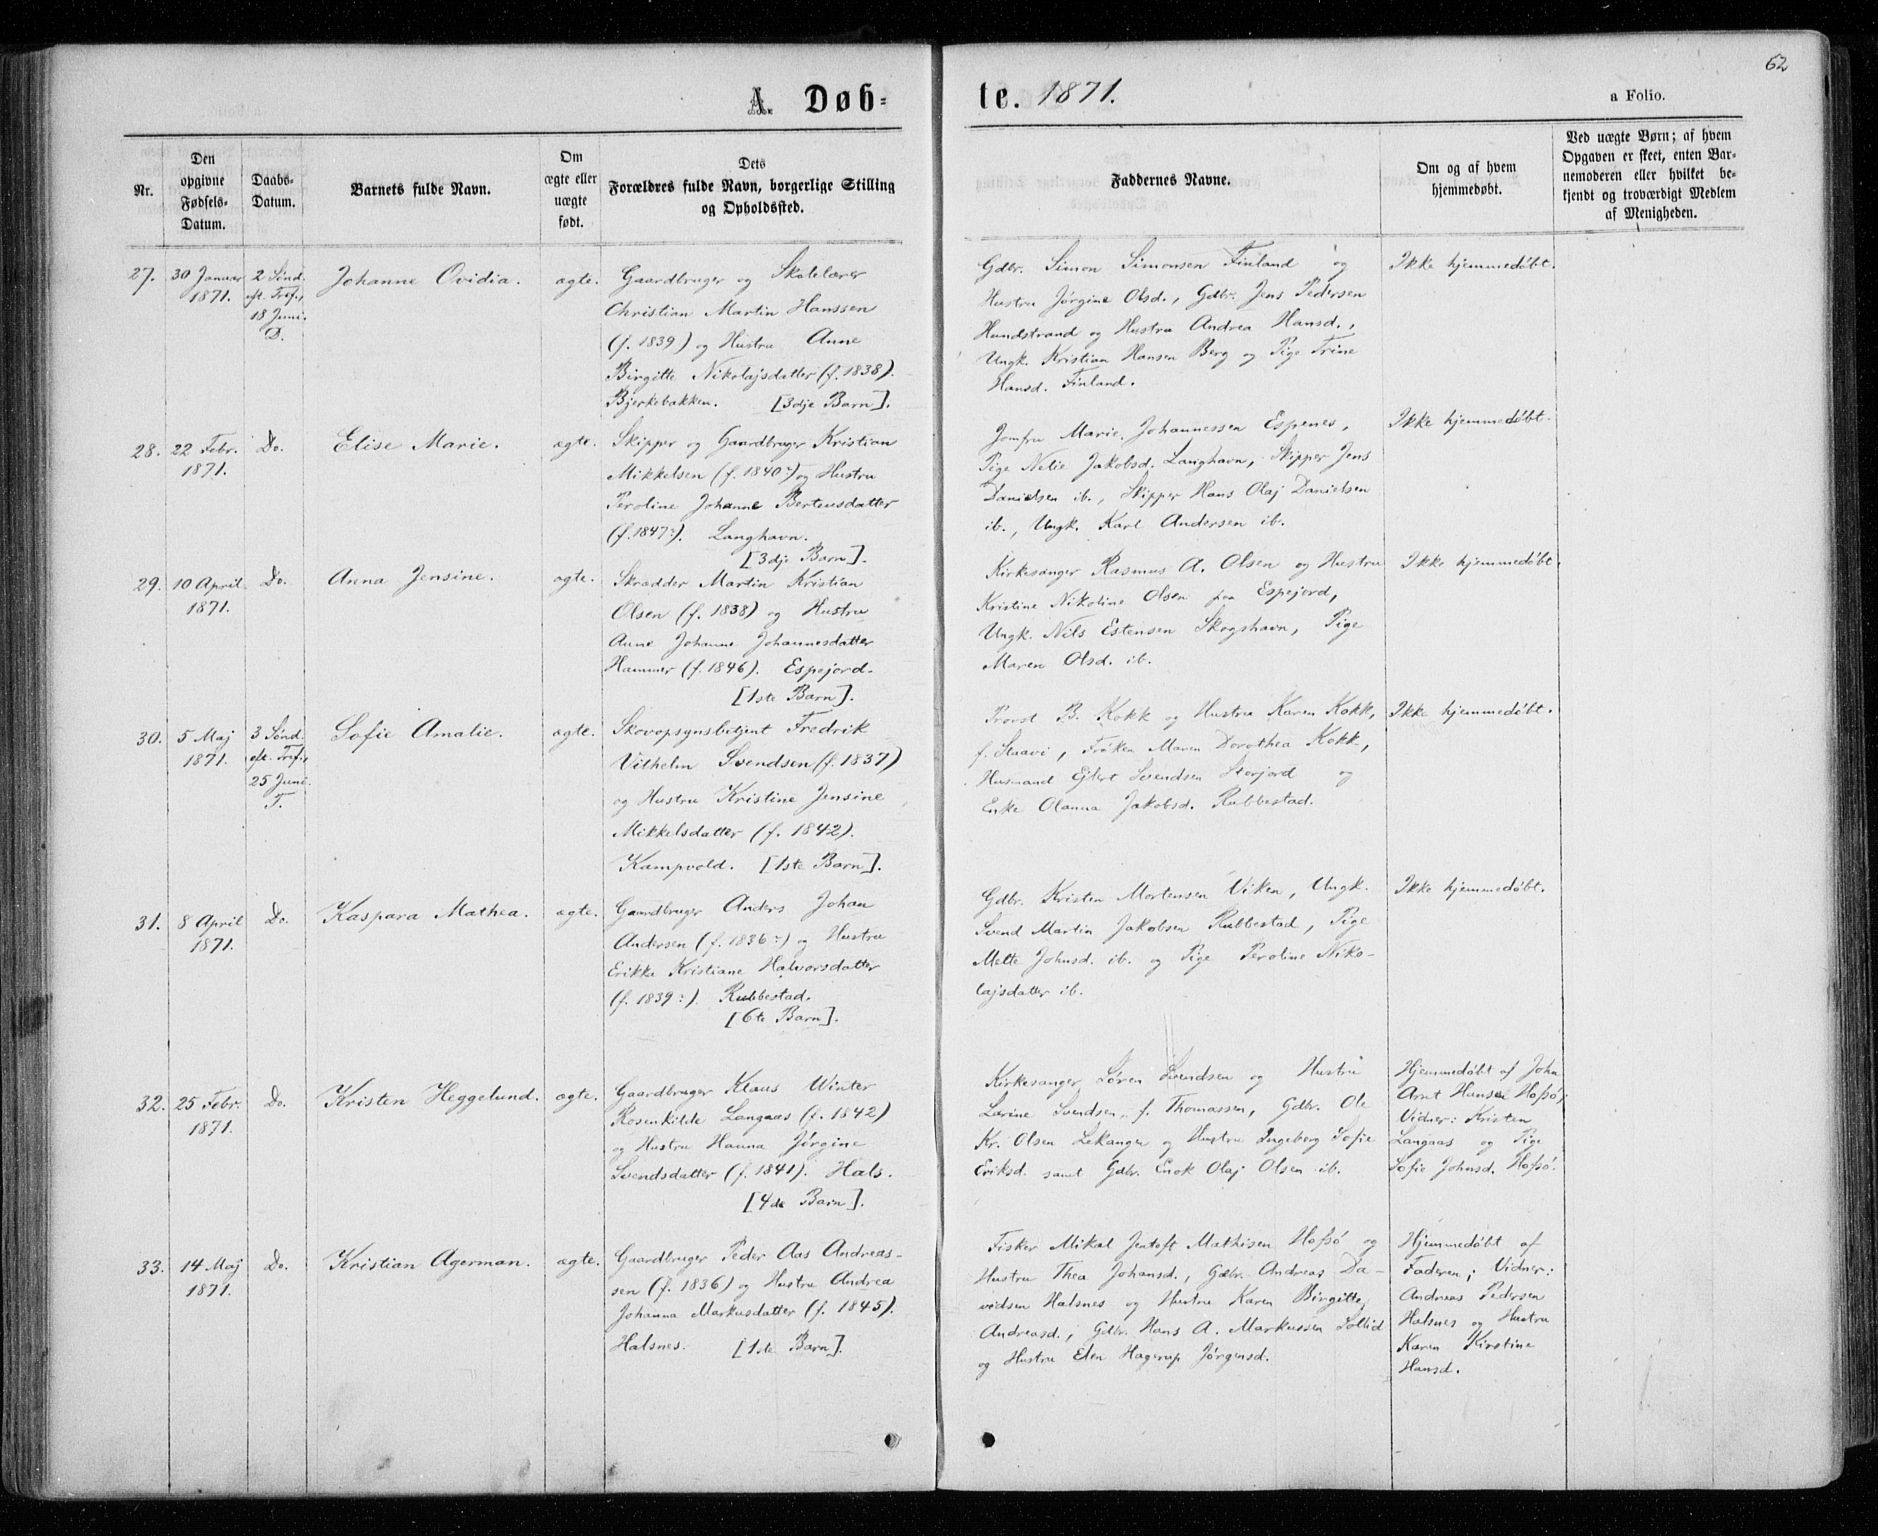 62
A. Døbte. 1871.
a Folio.
Nr.
Den opgivne Fødsels-Datum.
Daabs-Datum.
Barnets fulde Navn.
Om ægte eller uægte født.
Dets Forældres fulde Navn, borgerlige Stilling og Opholdssted.
Faddernes Navne.
Om og af hvem hjemmedøbt.
Ved uægte Børn; af hvem Opgaven er skeet, enten Barnemoderen eller hvilket bekjendt og troværdigt Medlem af Menigheden.
27.
30 Januar
1871.
2 Sønd.
eft. Tref.,
18 Juni.
D.
Johanne Ovidia.
ægte.
Gaardbruger og Skolelærer
Christian Martin Hanssen
(f. 1839) og Hustru Anne
Birgitte Nikolajsdatter (f. 1838).
Bjerkebakken. [3dje Barn].
Gdbr. Simon Simonsen Finland og
Hustru Jørgine Olsd., Gdbr. Jens Pedersen
Hundstrand og Hustru Andrea Hansd.,
Ungk. Kristian Hansen Berg og Pige Trine
Hansd. Finland.
Ikke hjemmedøbt.
28.
22 Febr.
1871.
Do.
Elise Marie.
ægte.
Skipper og Gaardbruger Kristian
Mikkelsen (f. 1840:) og Hustru
Peroline Johanne Berteusdatter
(f. 1847:). Langhavn.
[3dje Barn].
Jomfru Marie Johannessen Espenes,
Pige Nelie Jakobsd. Langhavn, Skipper Jens
Danielsen ib., Skipper Hans Olaj Danielsen
ib., Ungk. Karl Andersen ib.
Ikke hjemmedøbt.
29.
10 April
1871.
Do.
Anna Jensine.
ægte.
Skrædder Martin Kristian
Olsen (f. 1838) og Hustru
Anne Johanne Johannesdatter
Hammer (f. 1846). Espejord.
[1ste Barn].
Kirkesanger Rasmus A. Olsen og Hustru
Kristine Nikoline Olsen paa Espejord,
Ungk. Nils Estensen Skogshavn, Pige
Maren Olsd. ib.
Ikke hjemmedøbt.
30.
5 Maj
1871.
3 Sønd.
eft. Tref.,
25 Juni.
T.
Sofie Amalie.
ægte.
Skovopsynsbetjent Fredrik
Vilhelm Svendsen (f. 1837)
og Hustru Kristine Jensine
Mikkelsdatter (f. 1842).
Kampvold. [1ste Barn].
Provst B. Kokk og Hustru Karen Kokk,
f. Saave, Frøken Maren Dorothea Kokk,
Husmand Ejlert Svendsen Storjord og
Enke Olanna Jakobsd. Rubbestad.
Ikke hjemmedøbt.
31.
8 April
1871.
Do.
Kaspara Mathea.
ægte.
Gaardbruger Anders Johan
Andersen (f. 1836:) og Hustru
Erikka Kristiane Halvorsdatter
(f. 1839:). Rubbestad.
[6te Barn].
Gdbr. Kristen Mortensen Viken, Ungk.
Svend Martin Jakobsen Rubbestad, Pige
Mette Johnsd. ib. og Pige Peroline Niko-
lajsdatter ib.
Ikke hjemmedøbt.
32.
25 Febr.
1871.
Do.
Kristen Heggelund.
ægte.
Gaardbruger Klaus Winter
Rosenkilde Langaas (f. 1842)
og Hustru Hanna Jørgine
Svendsdatter (f. 1841). Hals.
[4de Barn].
Kirkesanger Søren Svendsen og Hustru
Lovine Svendsen, f. Thomassen, Gdbr. Ole
Kr. Olsen Lekangen og Hustru Ingeborg Sofie
Eriksd. samt Gdbr. Enok Olaj Olsen ib.
Hjemmedøbt af John
Arnt Hansen Hofsø;
Vidner: Kristen
Langaas og Pige
Sofie Johnsd. Hofsø.
33.
14 Maj
1871.
Do.
Kristian Agerman.
ægte.
Gaardbruger Peder Aas Andreas-
sen (f. 1836) og Hustru Andrea
Johanna Markusdatter (f. 1845).
Halsnes. [1ste Barn].
Fisker Mikal Jentoft Mathisen Hofsø og
Hustru Thea Johansd., Gdbr. Andreas Da-
vidsen Halsnes og Hustru Karen Birgitte
Andreasd., Gdbr. Hans A. Markussen Sollid
og Hustru Elen Hagerup Jørgensd.
Hjemmedøbt af
Faderen; Vidner:
Andreas Pedersen
Halsnes og Hustru
Karen Kirstine
Hansd.